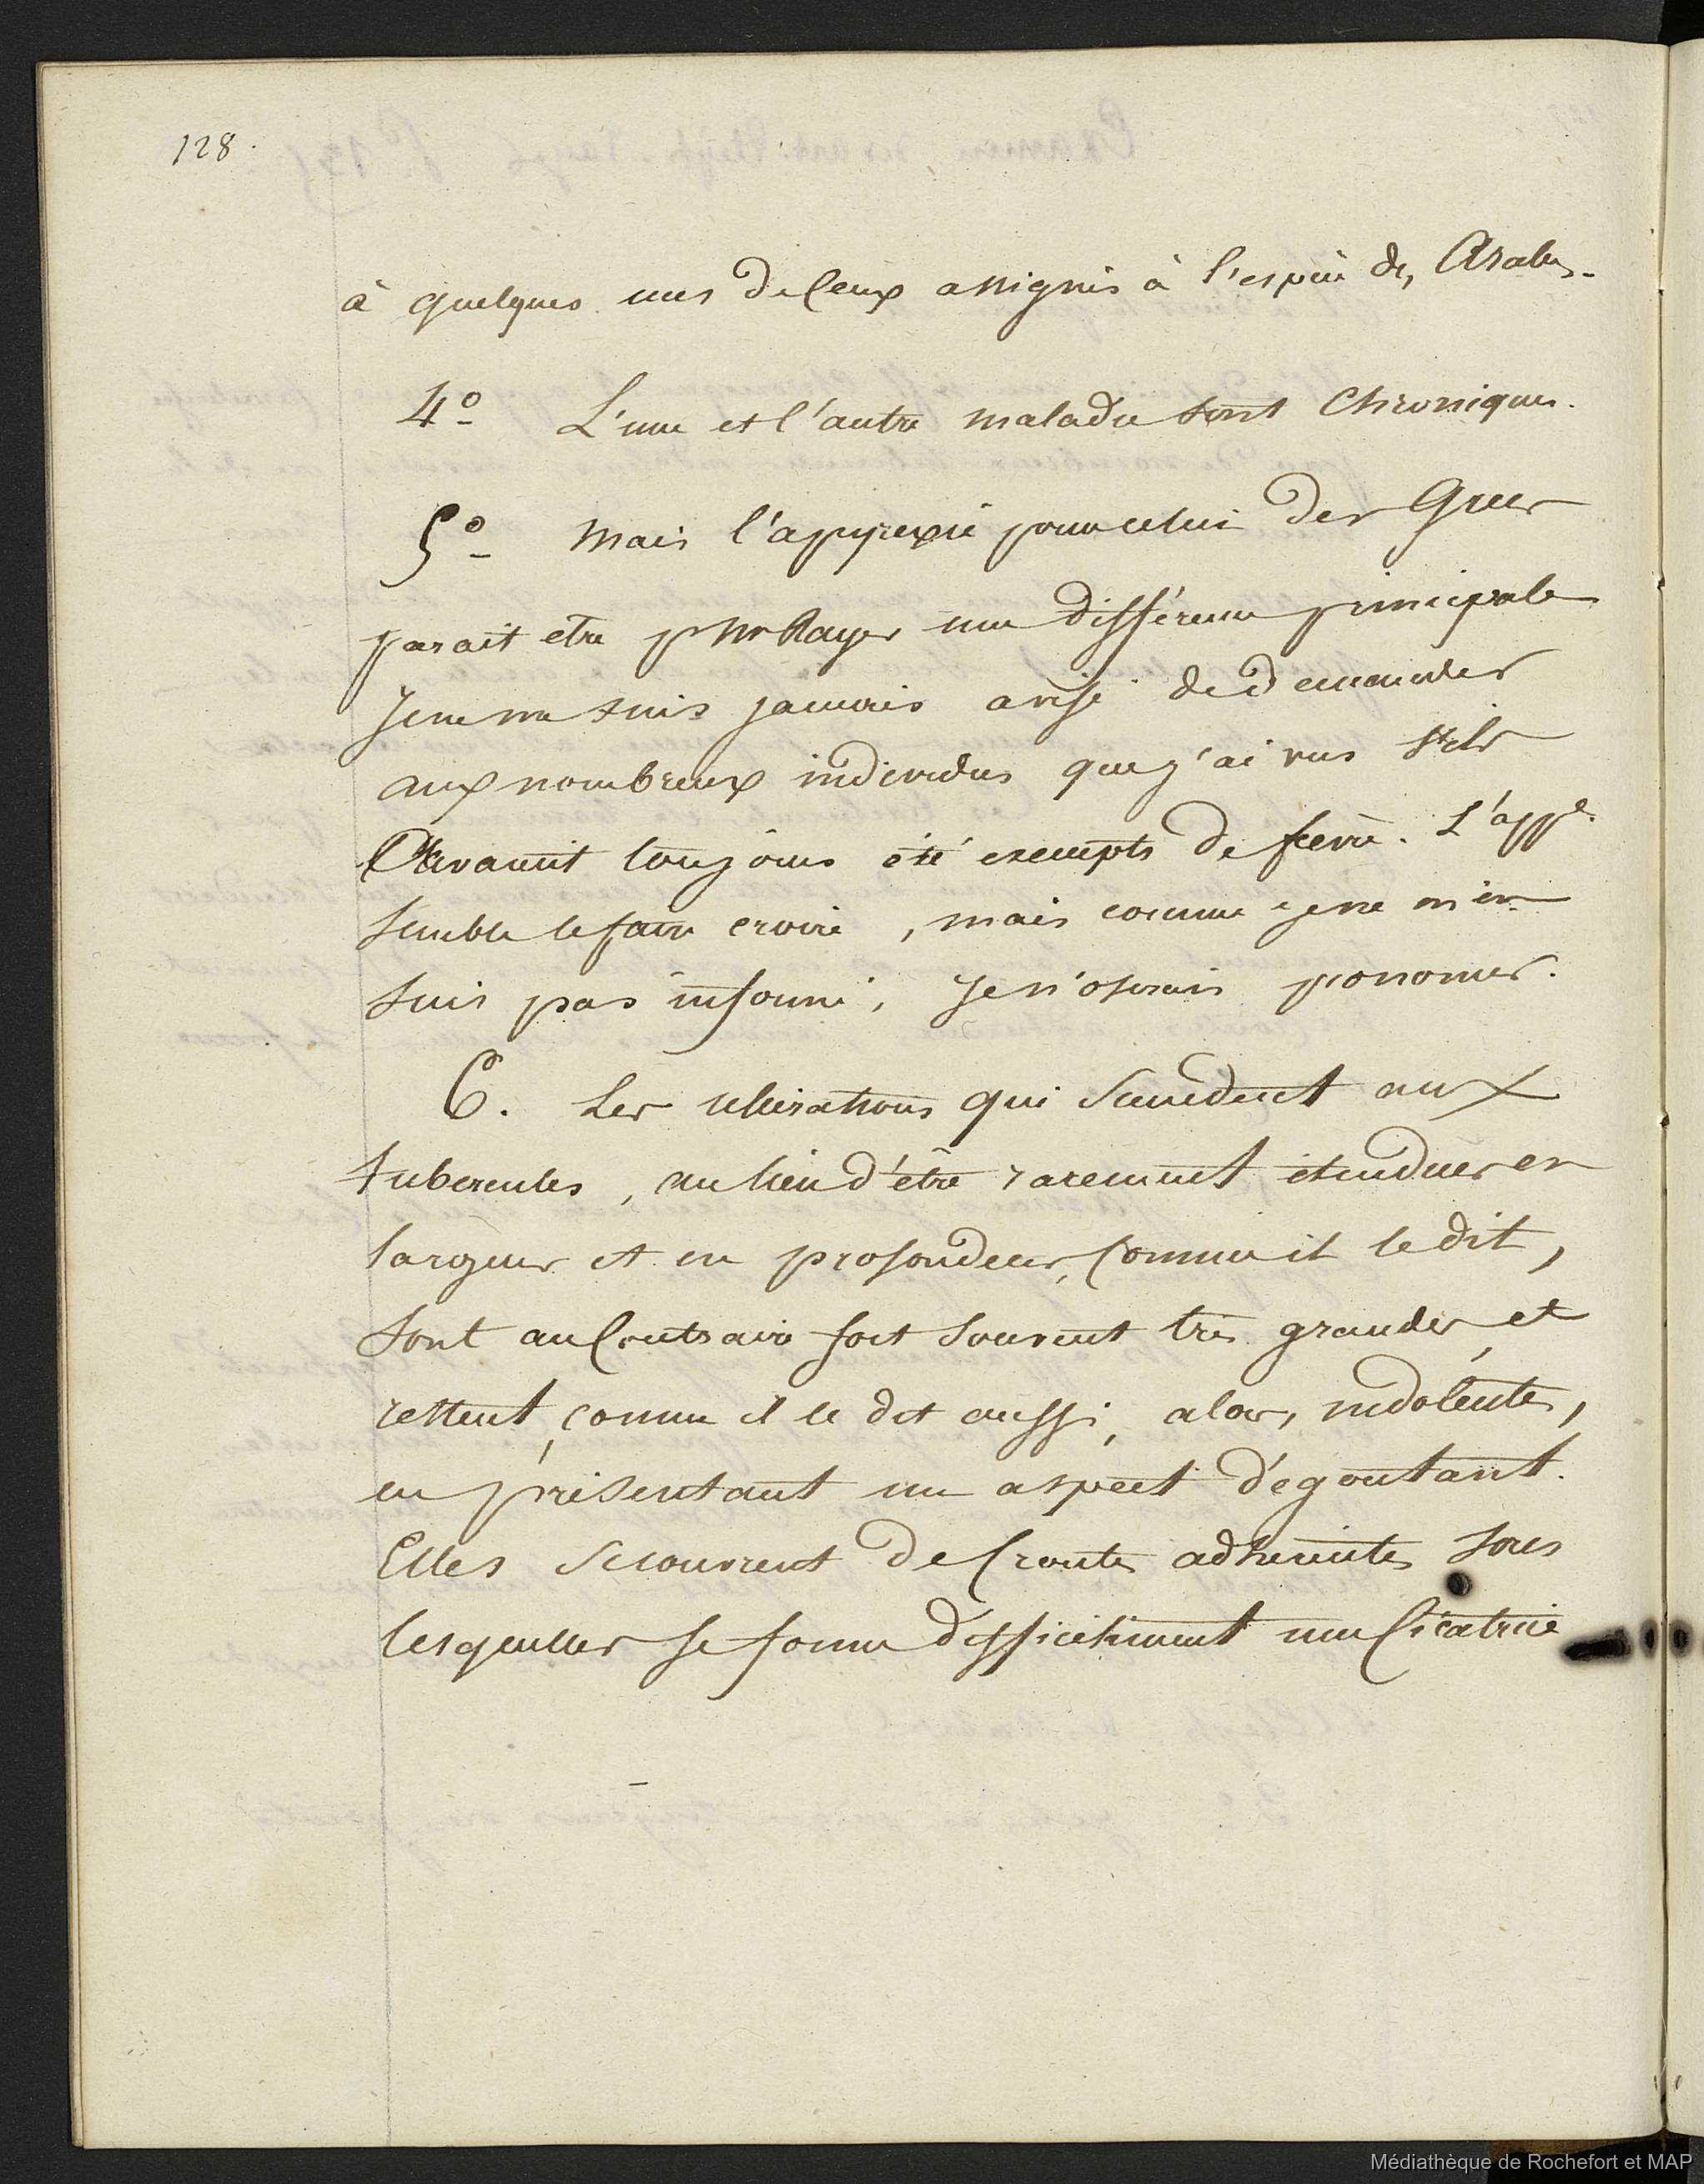 128.
à quelques unes de ceux assignés à l'espèce des Arabes.
4º L'une et l'autre maladie sont chroniques.
5º Mais l'apyrexie pour celui des Grecs
parait etre pr Mr Rayer une différence principale
Je ne me suis jamais avisé de demander
aux nombreux individus que j'ai vus s'ils
avaient toujours été exempts de fievre. L'app.e
semble le faire croire, mais comme je ne m'en
suis pas informé, je n'oserais prononcer.
6. Les ulcérations qui succedent aux
tubercules, au lieu d'être rarement étendues en
largeur et en profondeur, comme il le dit,
sont au contraire fort souvent très grandes, et
restent, comme il le dit aussi, alors, indolentes,
en présentant un aspect dégoutant.
Elles se couvrent de croutes adhérentes sous
lesquelles se forme difficilement une cicatrice
Médiathèque de Rochefort et MAP